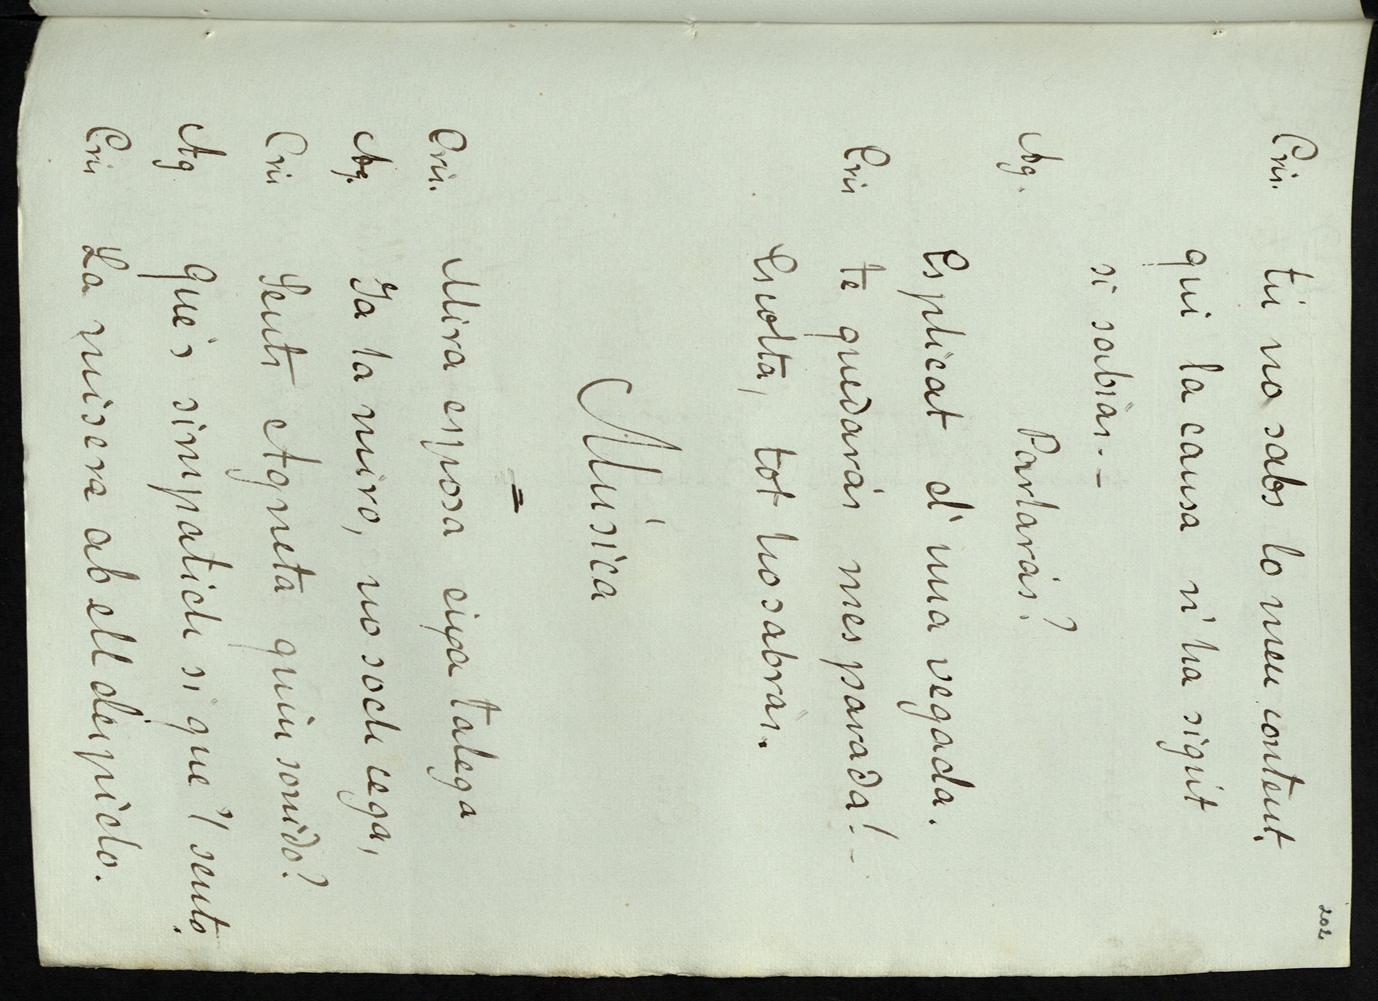 202
Cris. tú no sabs lo meu content,
qui la causa n'ha sigut
si sabiàs.-
Parlaràs?
Ag.
Esplicat d'una vegada.
Cris te quedaràs mes parada!-
Escolta, tot ho sabràs.
Música
=
Cris. Mira esposa eixa talega
Ag. Ja la miro, no soch cega,
Cris Sents Agneta quin sonido?
Ag Qué's simpatich si que'l sento.
Cris La misera ab ell despido.